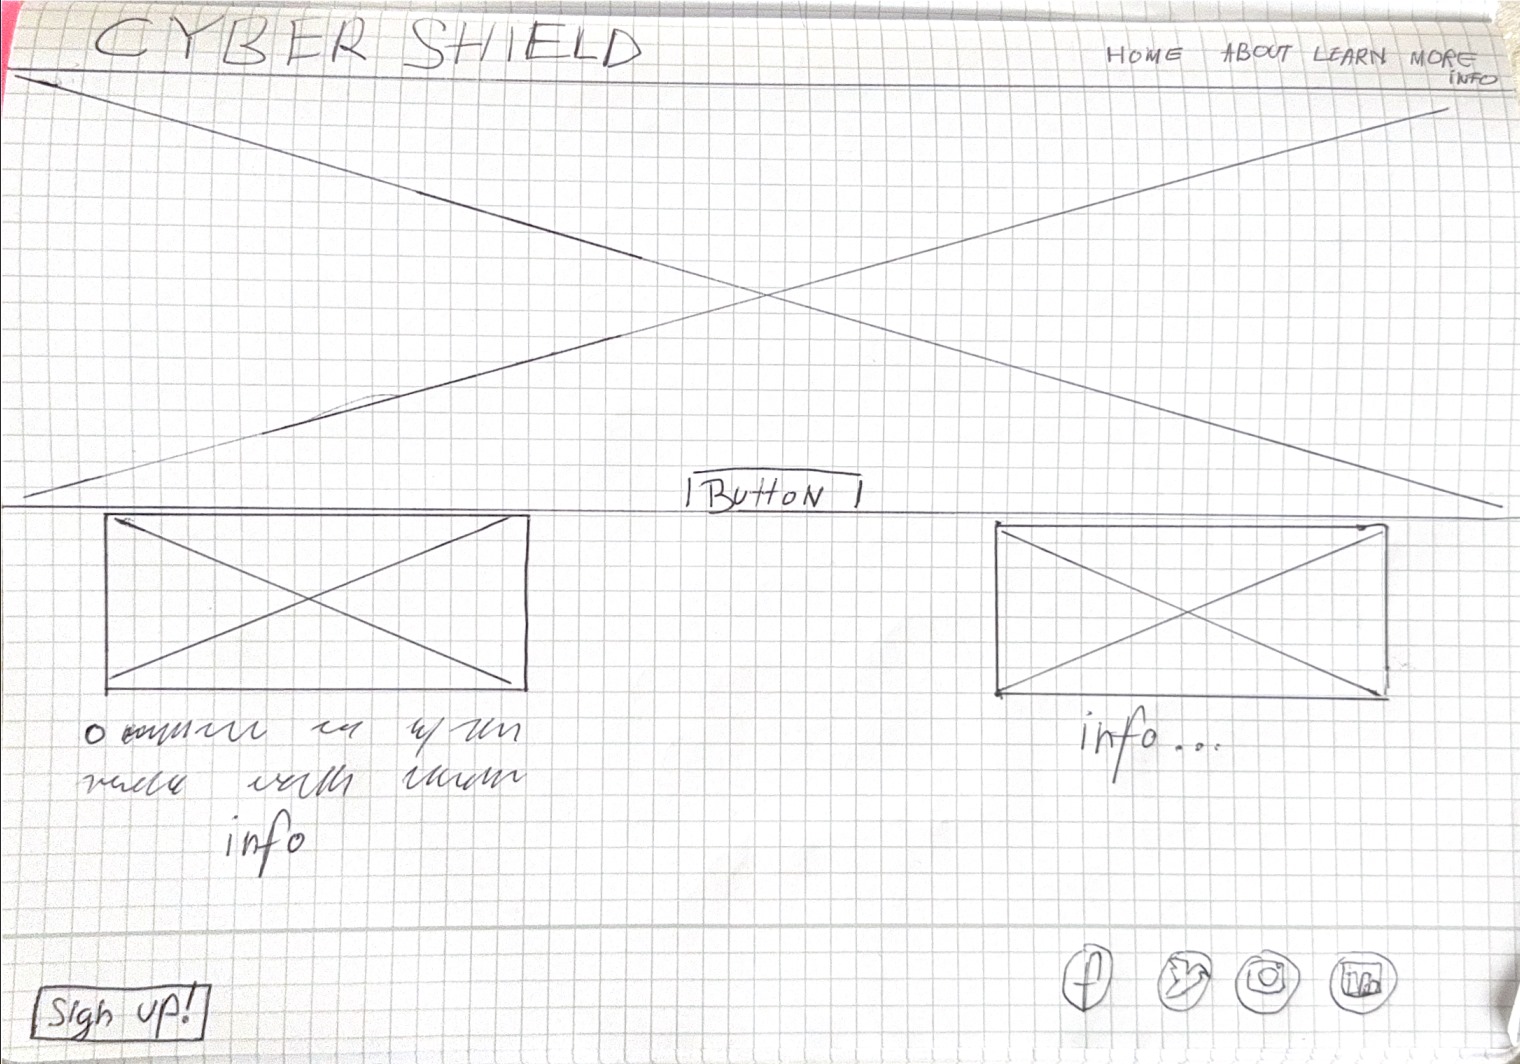 CYBER SHIELD
HOME ABOUT LEARN MORE
INFO
BUttON
info
info...
Sign up!
f
in